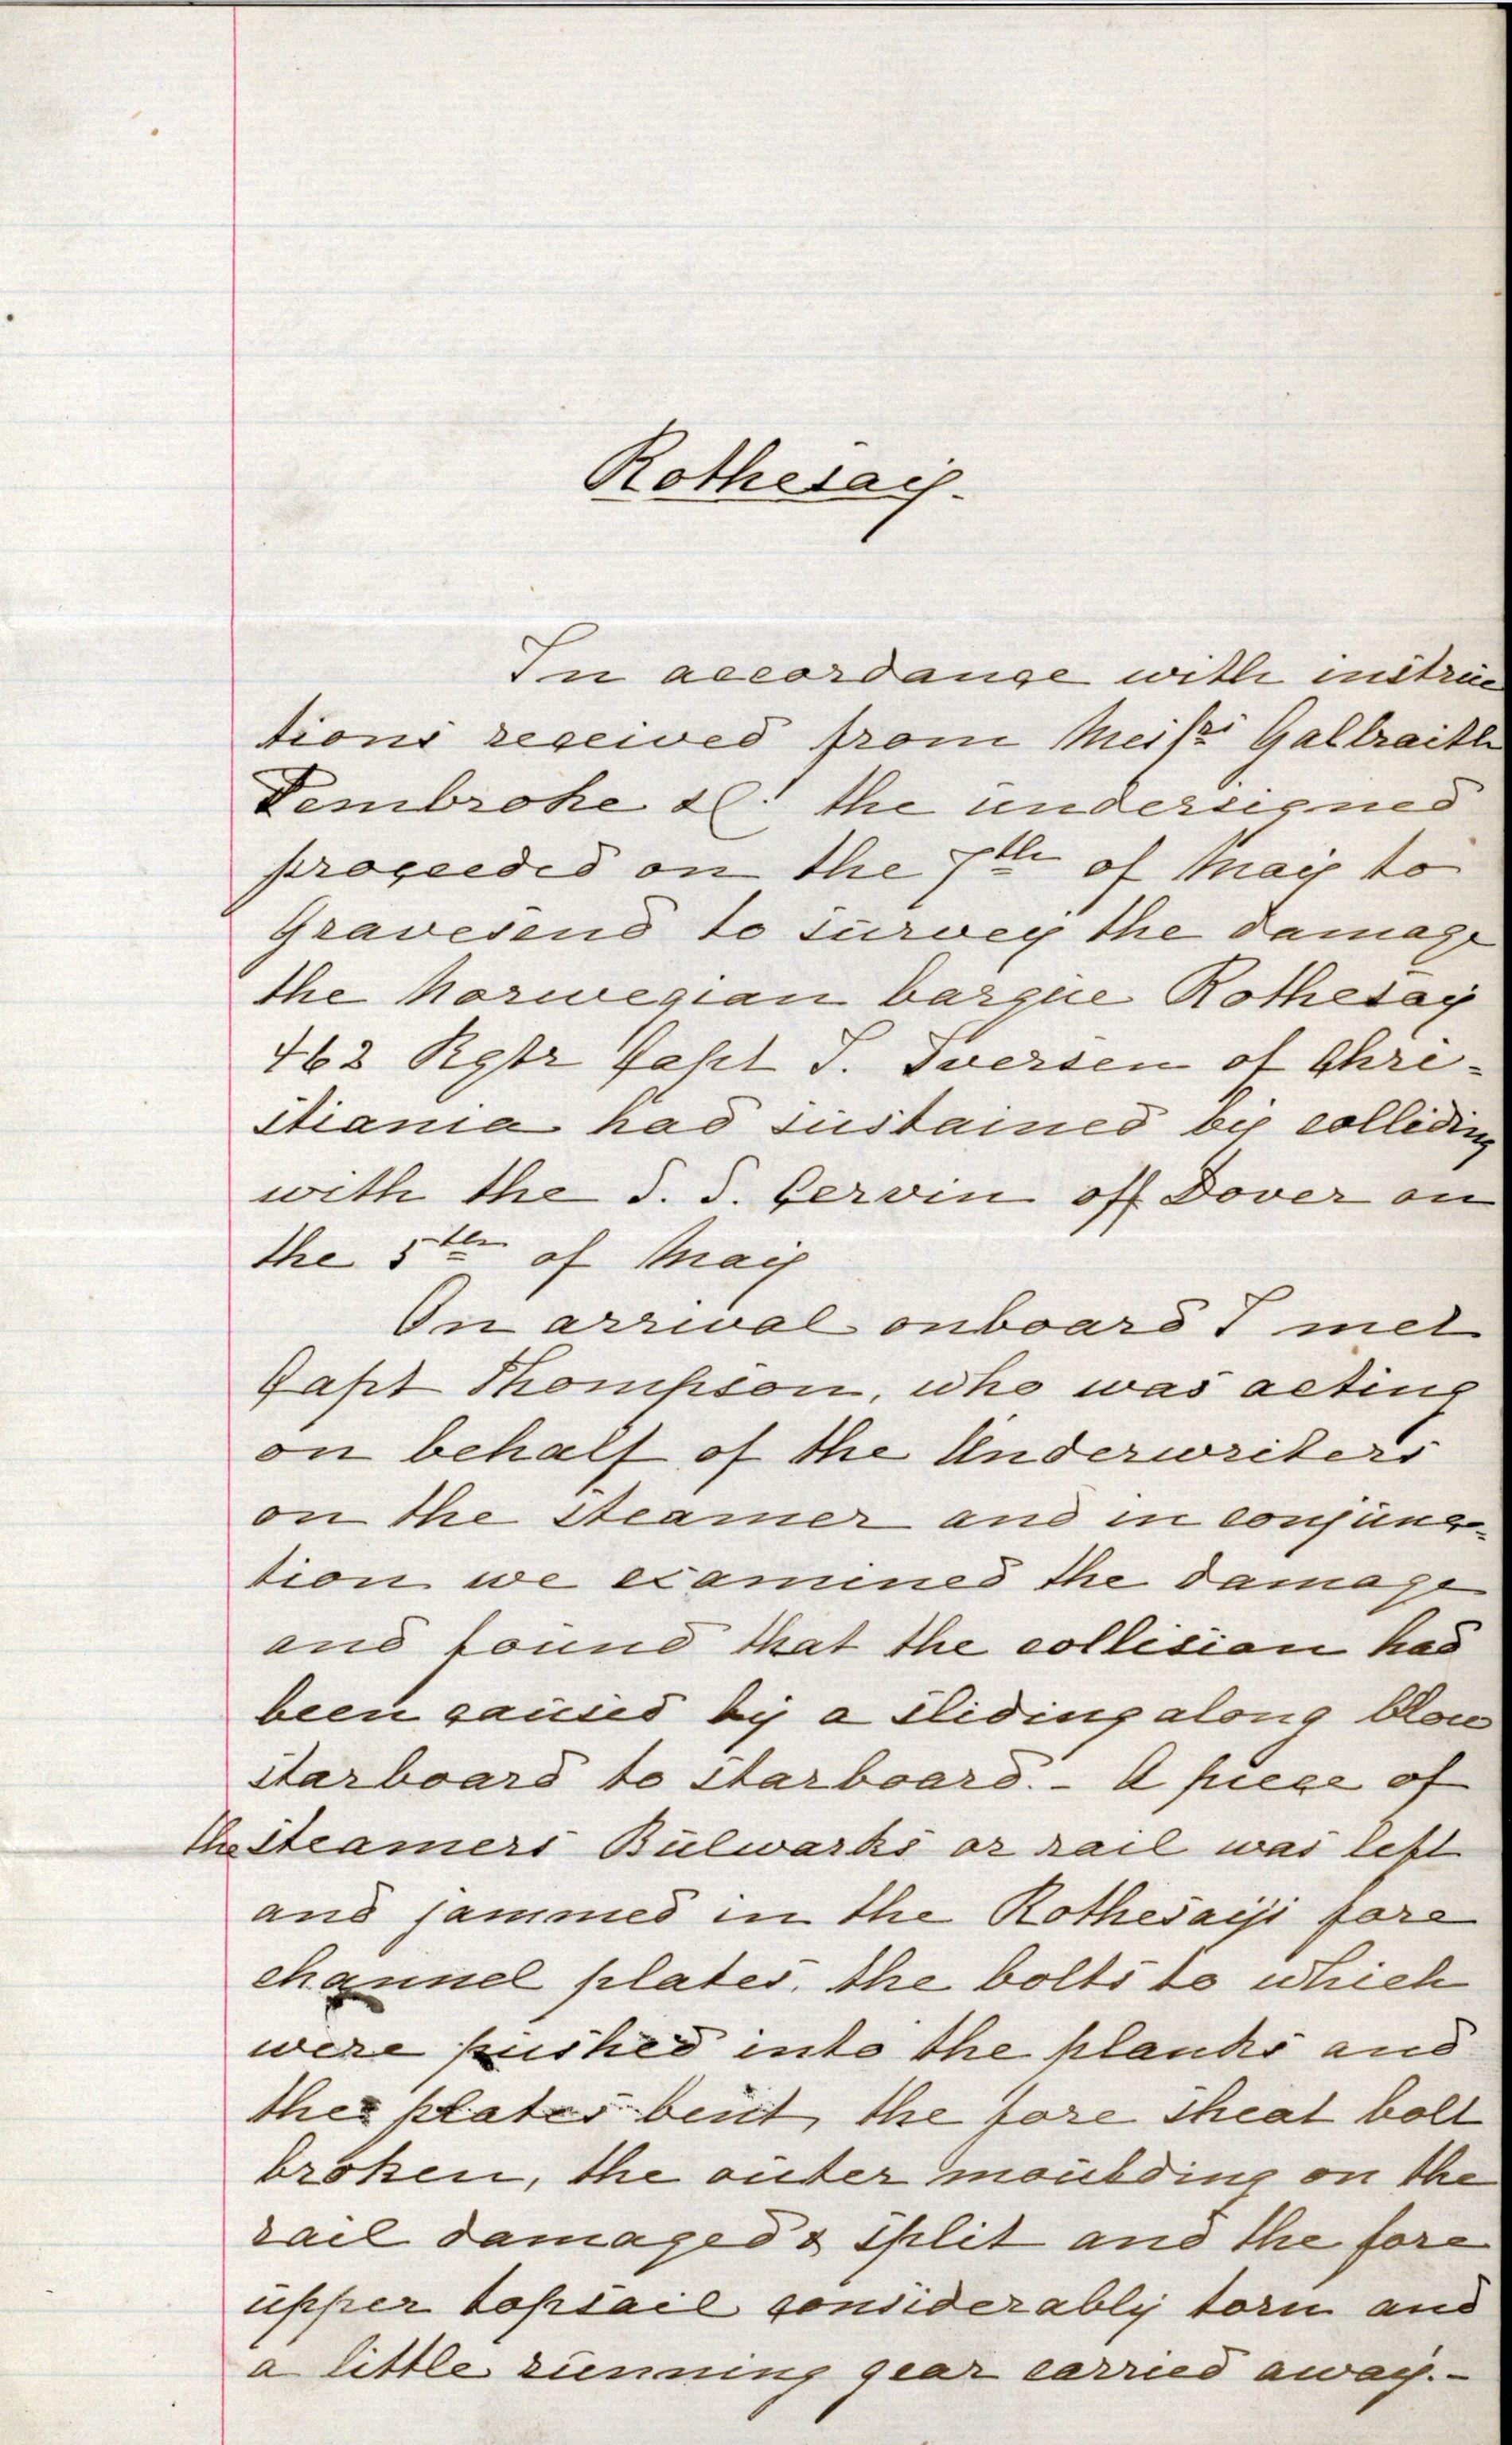 Rothesay.
In accordance with instruc
tions received from Messrs Galbraith
Pembroke &c. the undersigned
proceeded on the 7th of May to
Gravesend to survey the damage
the Norwegian barque Rothesay
462 Rgtr Capt I. Iversen of Chri-
stiania had sustained by colliding
with the S. S. Cervin off Dover on
the 5th of May
On arrival onboard I met
Capt Thompson, who was acting
on behalf of the Underwriters
on the steamer and in conjunc-
tion we examined the damage
and found that the collision had
been caused by a sliding along blow
starboard to starboard. - A piece of
the steamers Bulwarks or rail was left
and jammed in the Rothesays fore
channel plates, the bolts to which
were pushed into the planks and
the plates bent, the fore sheat bolt
broken, the outer moulding on the
rail damaged & split and the fore
upper topsail considerably torn and
a little running gear carried away. -